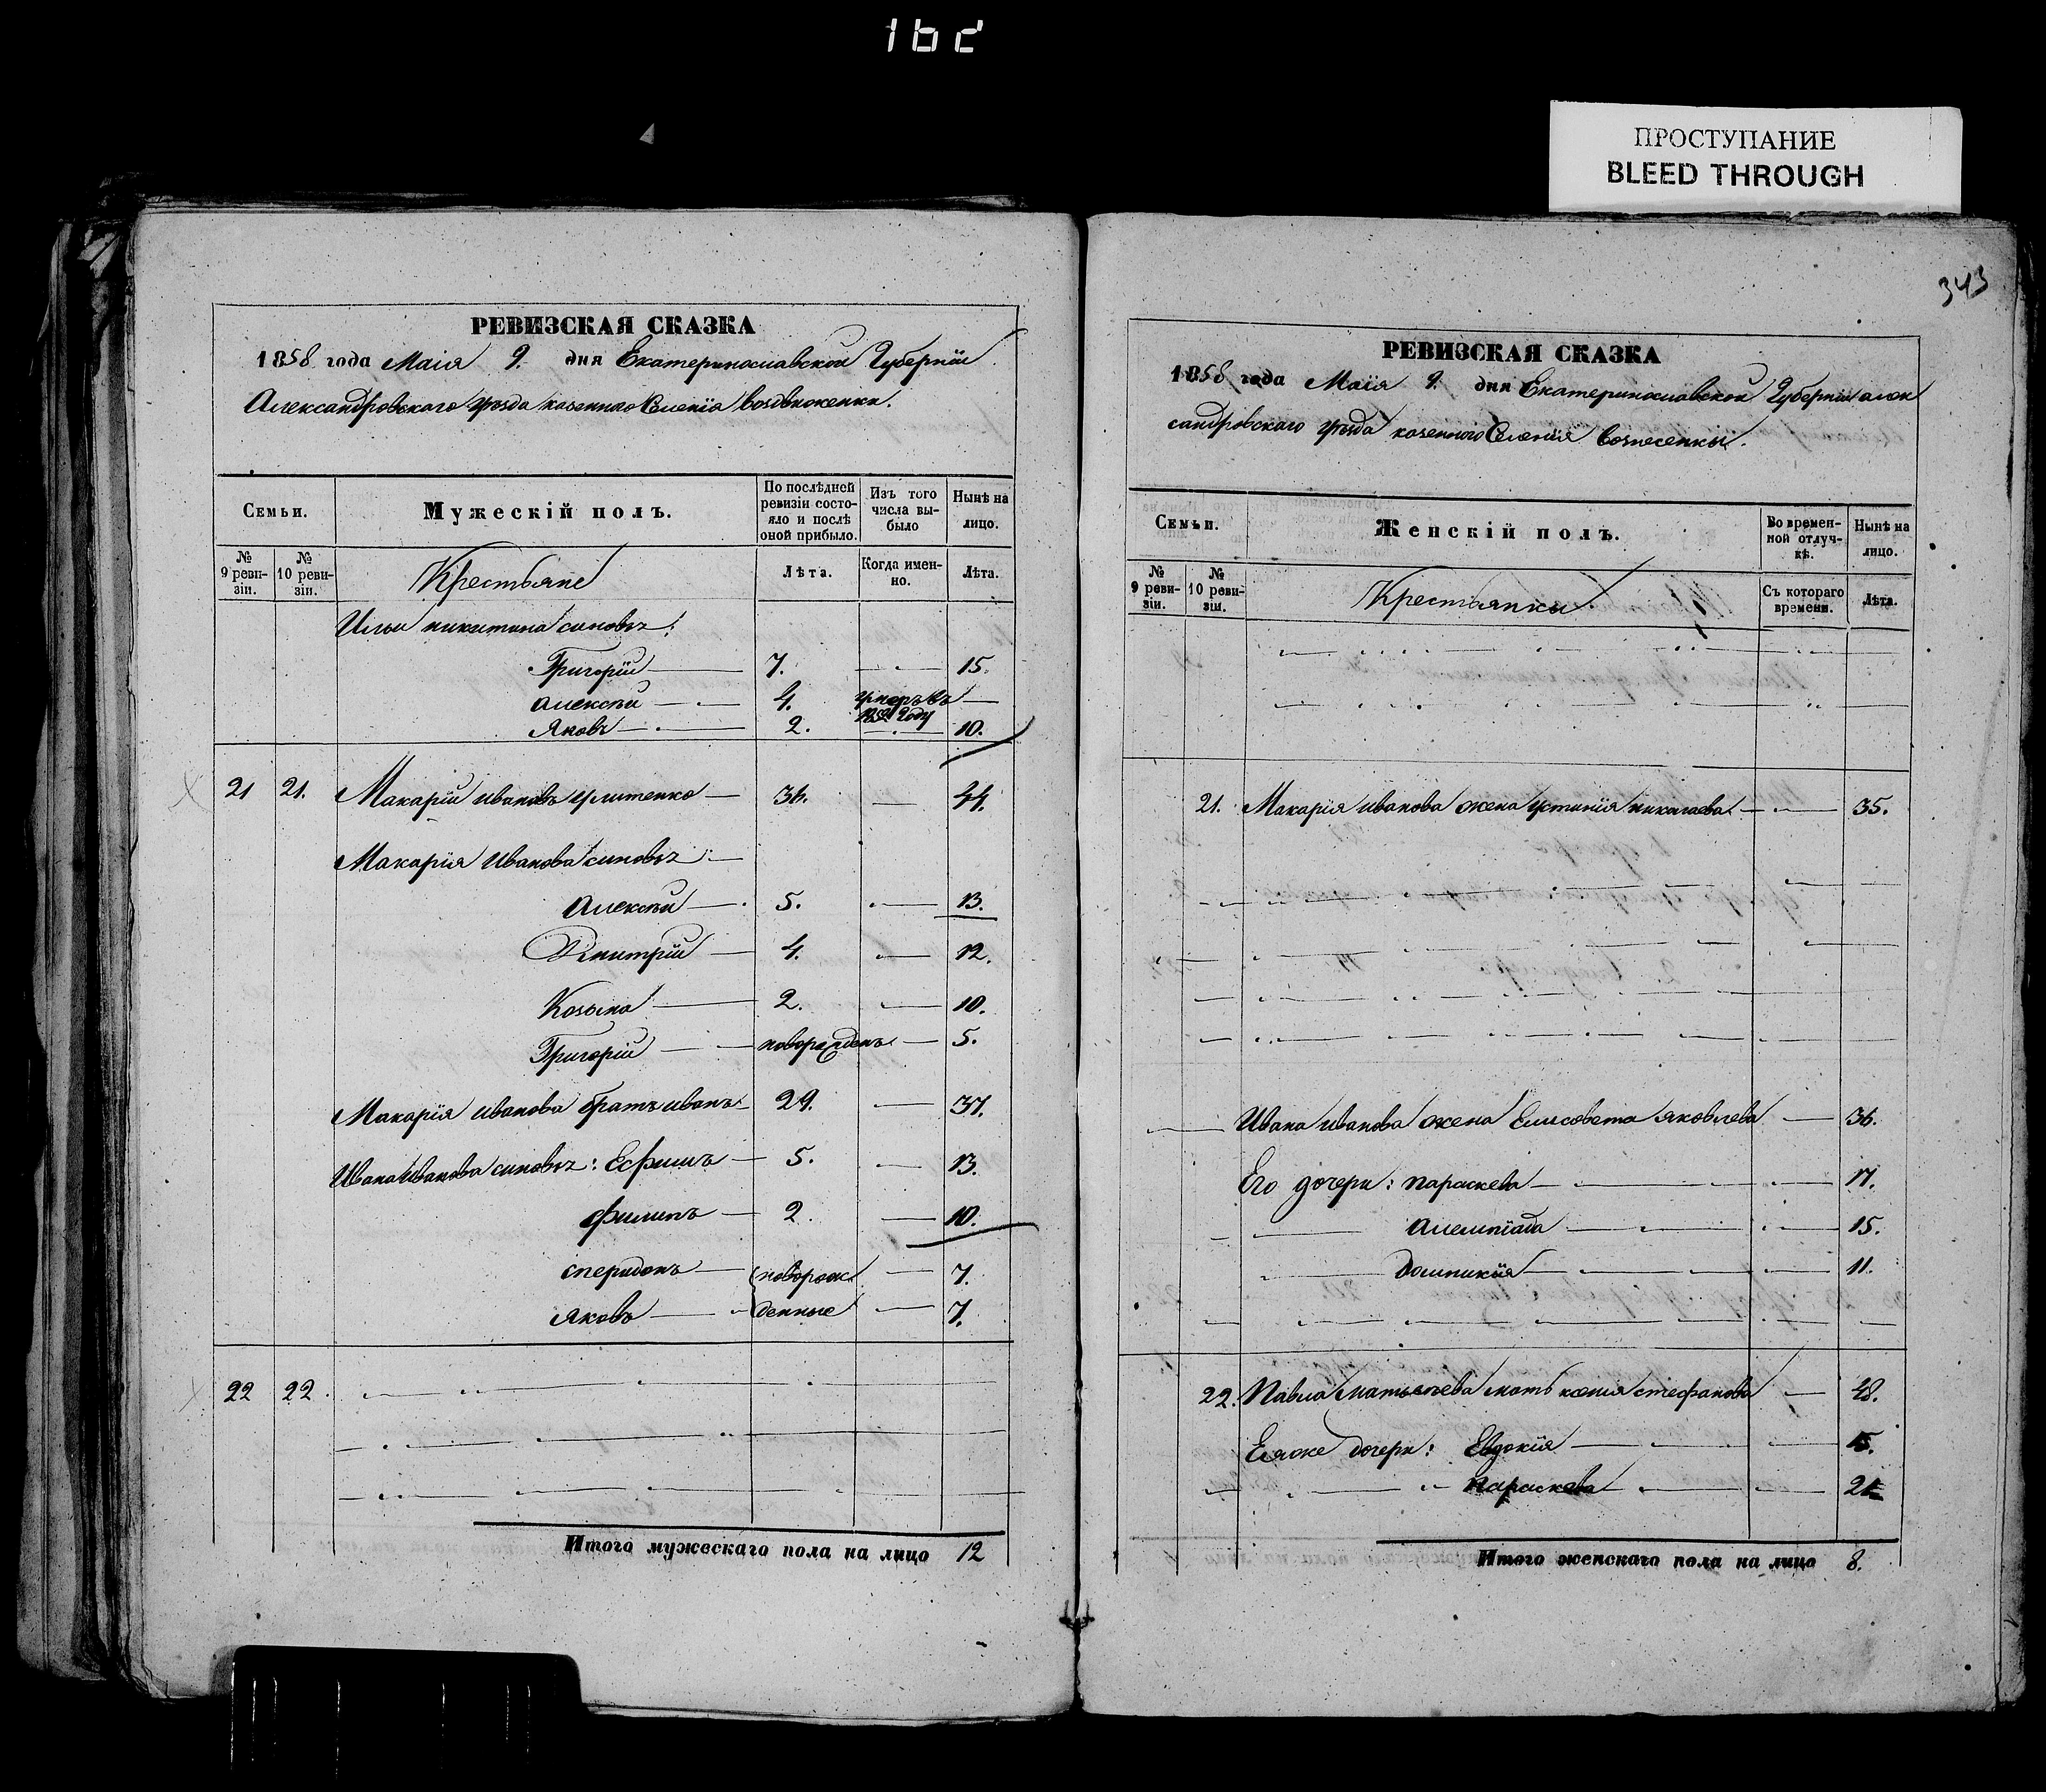 162
ПРОСТУПАНИЕ
BLEED THROUGH
343
РЕВИЗСКАЯ СКАЗКА
1858 года Маія 9. дня Екатеринославской Губерніи
Александровскаго уѣзда казеннаго Селенія
Семьи.
Мужескій полъ.
По послѣдней ревизіи состояло и послѣ оной прибыло.
Изъ того числа выбыло
Ныне на лицо.
№ 9 ревизіи.
№ 10 ревизіи.
Крестьяне
Лѣта.
Когда именно.
Лѣта.
Ильи никитина сыновьz:
Григорій 7. 15.
Алексѣй 4. умеръ въ
году
Яковъ 2. 10.
21 21. Макарій ивановъ улитенко 36. 44.
Макарія Иванова сыновьz:
Алексѣй 5. 13.
Дмитрій 4. 12.
Козьма 2. 10.
Григорій новорожденъ 5.
Макарія иванова братъ иванъ 29. 37.
Ивана Иванова сыновьz: Ефимъ 5. 13.
филипъ 2. 10.
сперидонъ новорож 7.
Яковъ денные 7.
22 22.
Итого мужескаго пола на лицо 12
РЕВИЗСКАЯ СКАЗКА
1858 года Маія 9. дня Екатеринославской Губерніи алек
сандровскаго уѣзда казенного Селенія вознесенки.
Семьи.
Женскій полъ.
Во временной отлучкѣ.
Нынѣ на лицо.
№ 9 ревизіи.
№ 10 ревизіи.
Крестьянки
Съ котораго времени.
Лѣта.
21. Макарія иванова жена устинія николаева 35.
Ивана иванова жена Елисовета яковлева 36.
Его дочери: параскева 17.
Алемпіада 15.
Домникія 11.
22. Павла матвѣева мать ксенія стефанова 48.
Еяже дочери: Евдокія 15.
параскева
Итого женскаго пола на лицо 8.